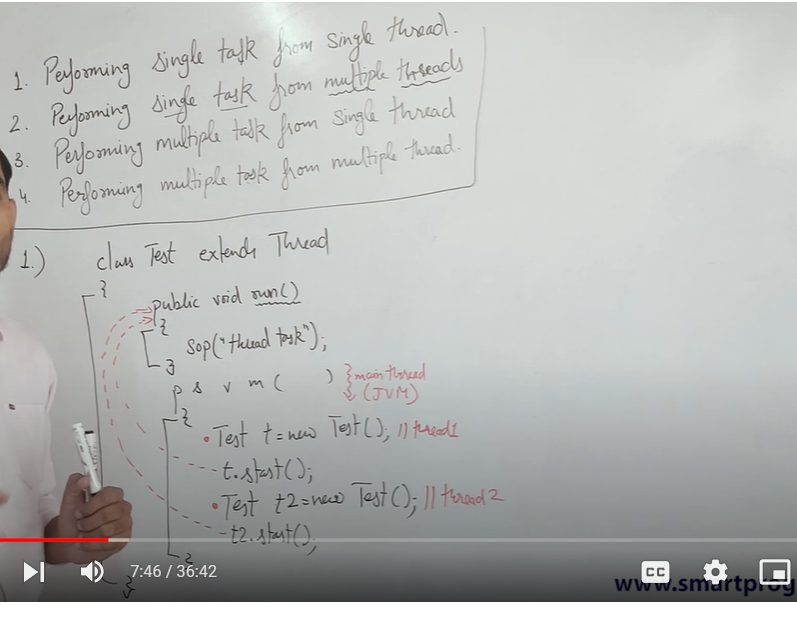 1. Performing single task from single thread.
2. Performing single task from multiple threads
3. Performing multiple task from single thread
4. Performing multiple task from multiple thread.
1.) class Test extends Thread
{
public void run()
{
sop("thread task");
}
p s v m ( ) } main thread
(JVM)
{
• Test t = new Test(); // thread1
t.start();
• Test t2 = new Test(); // thread2
t2.start();
}
}
7:46 / 36:42
CC
www.smartprog